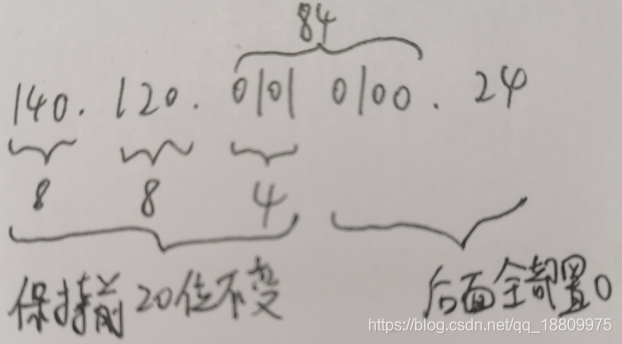 84
140. 120. 0101 0100. 24
8 8 4
保持前20位不变 后面全部置0
https://blog.csdn.net/qq_18809975